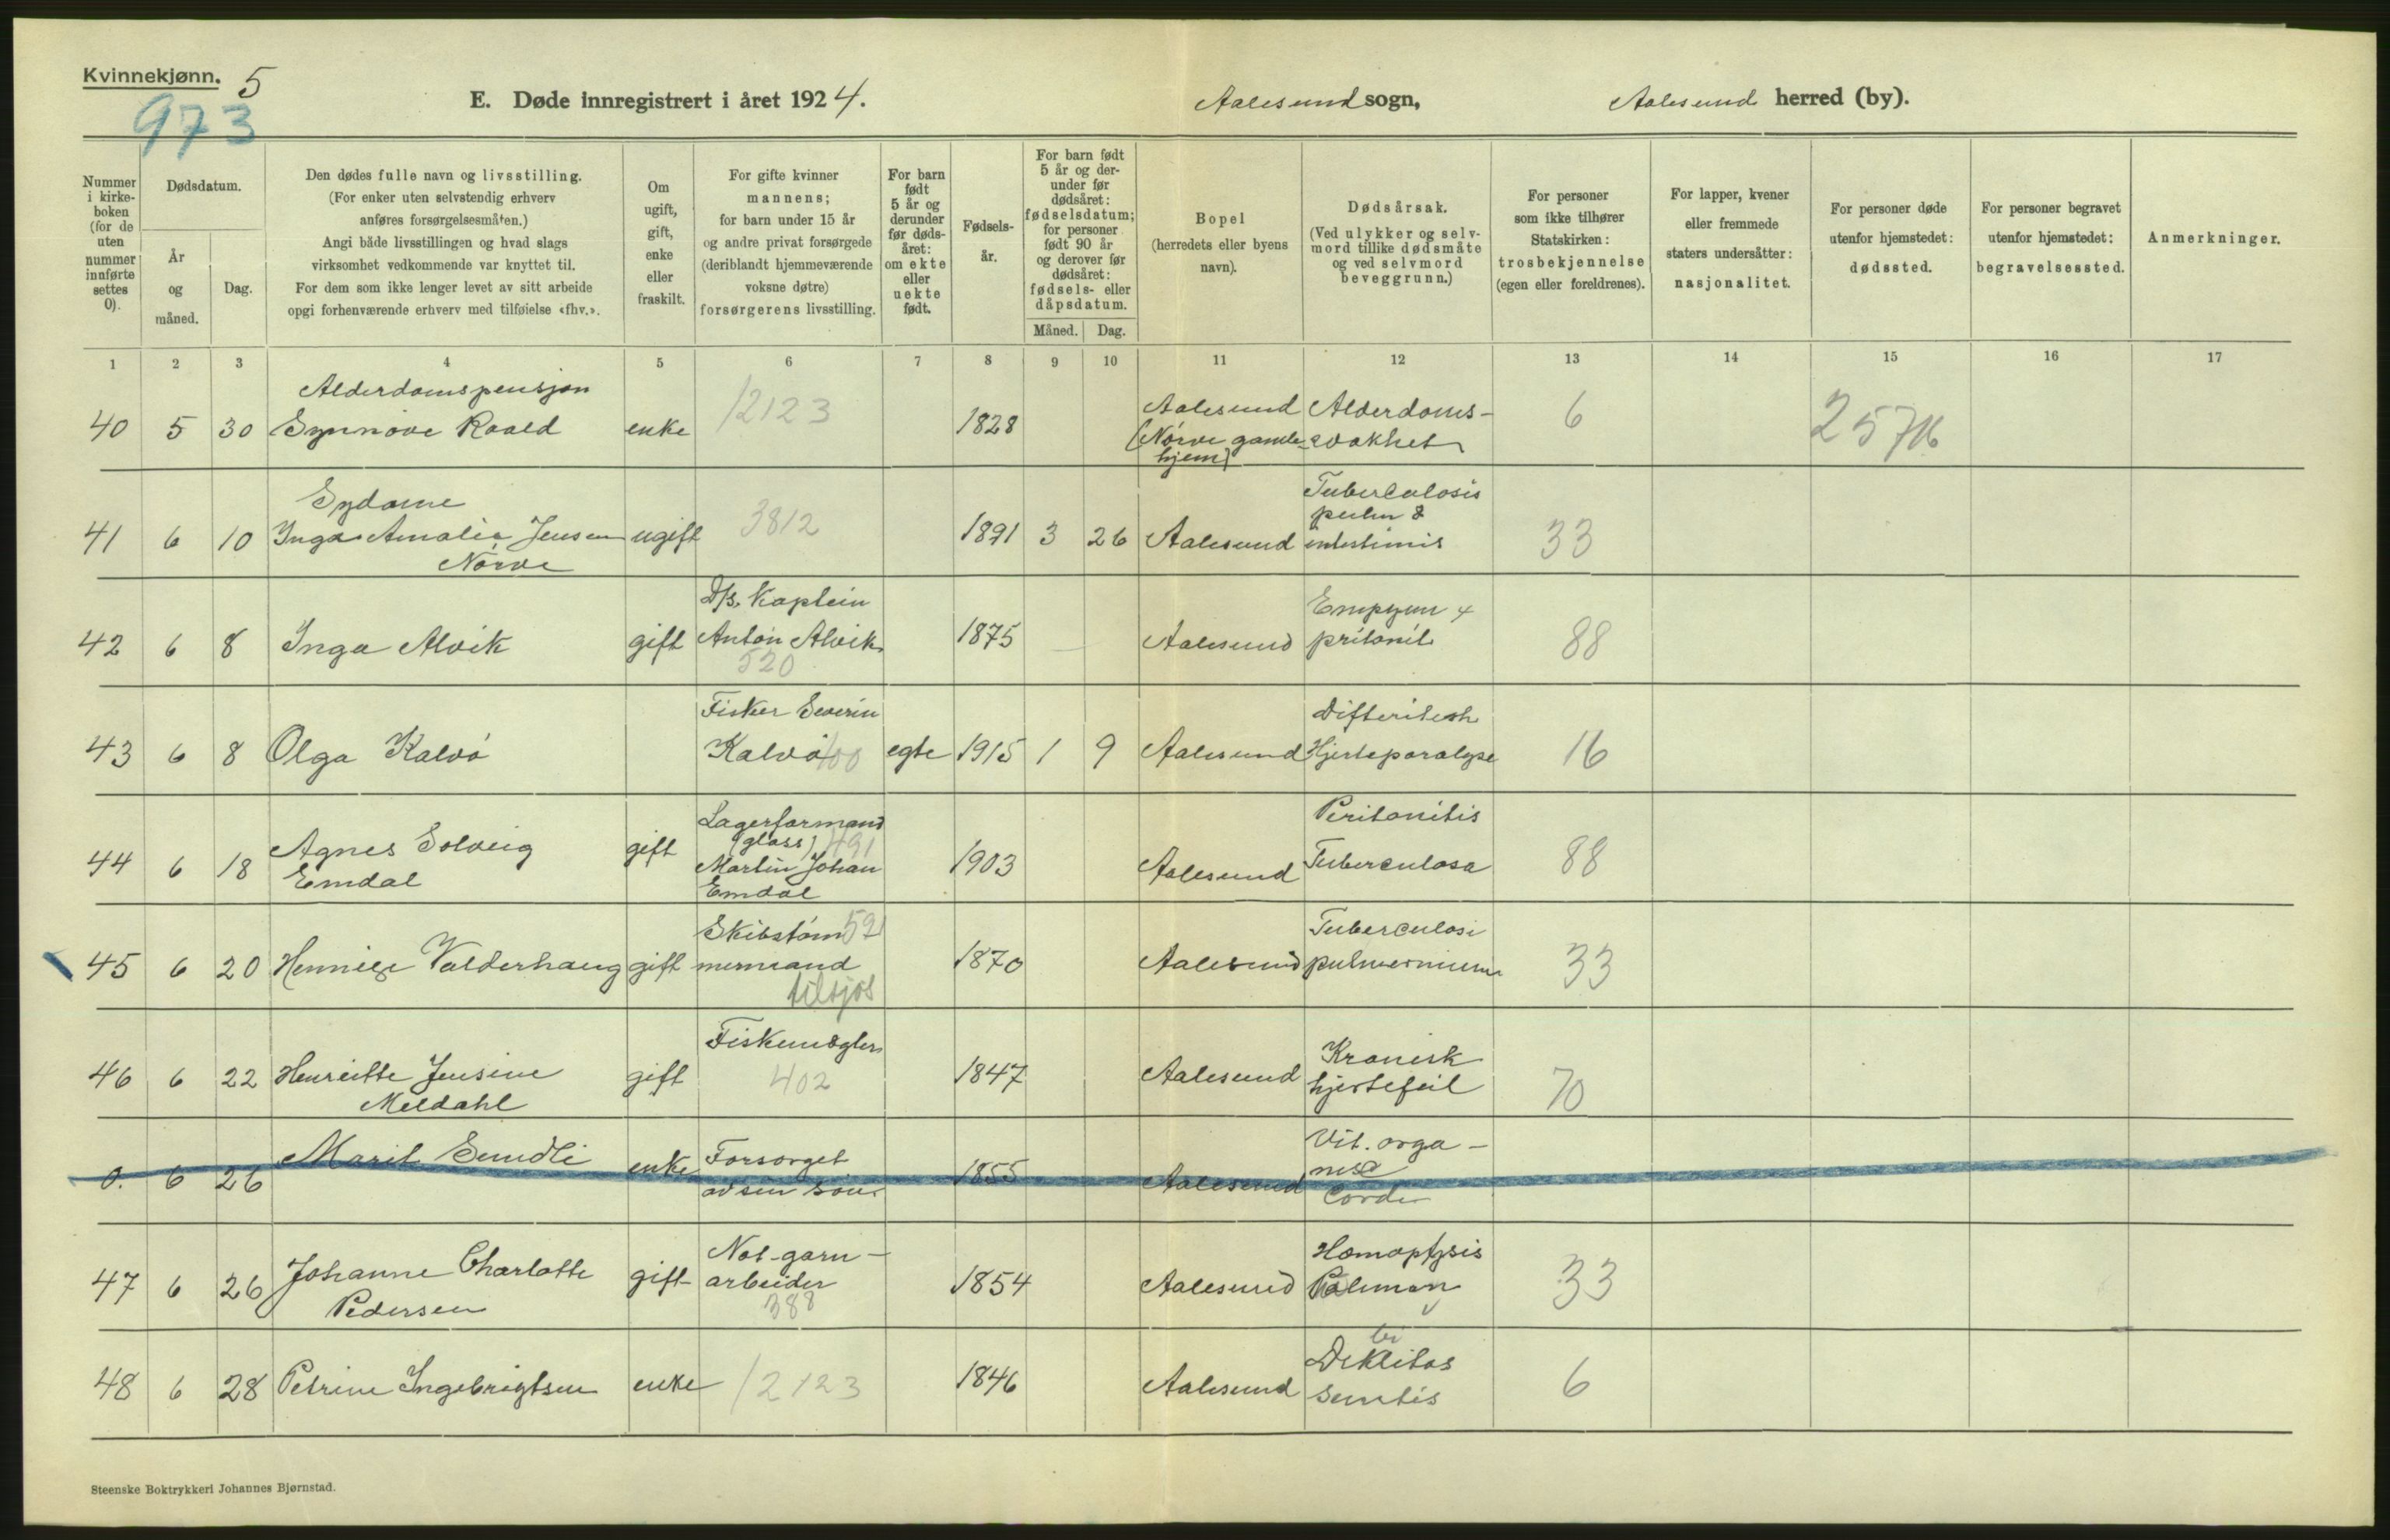 Kvinnekjønn. 5
973
E. Døde innregistrert i året 1924. Aalesund sogn, Aalesund herred (by).
Nummer i kirke- boken (for de uten nummer innførte settes 0).
Dødsdatum.
År og måned.
Dag.
Den dødes fulle navn og livsstilling.
(For enker uten selvstendig erhverv
anføres forsørgelsesmåten.)
Angi både livsstillingen og hvad slags
virksomhet vedkommende var knyttet til.
For dem som ikke lenger levet av sitt arbeide
opgi forhenværende erhverv med tilføielse «fhv.».
Om ugift, gift, enke eller fraskilt.
For gifte kvinner
mannens;
for barn under 15 år
og andre privat forsørgede
(deriblandt hjemmeværende
voksne døtre)
forsørgerens livsstilling.
For barn født 5 år og derunder før døds- året: om ekte eller uekte født.
Fødsels- år.
For barn født 5 år og der- under før dødsåret: fødselsdatum; for personer født 90 år og derover før dødsåret: fødsels- eller dåpsdatum.
Måned. Dag.
Bopel
(herredets eller byens
navn).
Dødsårsak.
(Ved ulykker og selv-
mord tillike dødsmåte
og ved selvmord
beveggrunn.)
For personer
som ikke tilhører
Statskirken:
trosbekjennelse
(egen eller foreldrenes).
For lapper, kvener
eller fremmede
staters undersåtter:
nasjonalitet.
For personer døde
utenfor hjemstedet:
dødssted.
For personer begravet
utenfor hjemstedet:
begravelsessted.
Anmerkninger.
1 2 3 4 5 6 7 8 9 10 11 12 13 14 15 16 17
Alderdomspensjon
40 5 30 Synnöve Roald enke 12123 1828 Aalesund (Nörve gamle- hjem) Alderdoms- svakhet 6
Sydame
41 6 10 Inga Amalia Jensen Nörve ugift 3812 1891 3 26 Aalesund Tuberculosis pulm & intestinis 33
42 6 8 Inga Alvik gift D/s. Kaptein Anton Alvik 520 1875 Aalesund Empyem + pritonit 88
43 6 8 Olga Kalvö Fisker Severin Kalvö 400 egte 1915 1 9 Aalesund Difteritisk Hjerteparalyse 16
44 6 18 Agnes Solveig Emdal gift Lagerformand (glass) 491 Martin Johan Emdal 1903 Aalesund Peritonitis Tuberculosa 88
45 6 20 Valderhaug gift Skibstöm 521 mermand tilsjøs 1870 Aalesund Tuberculosi pulmonium 33
46 6 22 Henriette Jensine Meldahl gift Fiskemægler 402 1847 Aalesund Kronisk hjertefeil 70
0. 6 26 Marit Sundli enke Forsörget av sin sön 1855 Aalesund Vit. orga- nisa Cordi
47 6 26 Johanne Charlotte Pedersen gift Not-garn- arbeider 388 1854 Aalesund Hæmoptysis 33
48 6 28 Petrine Ingebrigtsen enke 12123 1846 Aalesund 6
Steenske Boktrykkeri Johannes Bjørnstad.